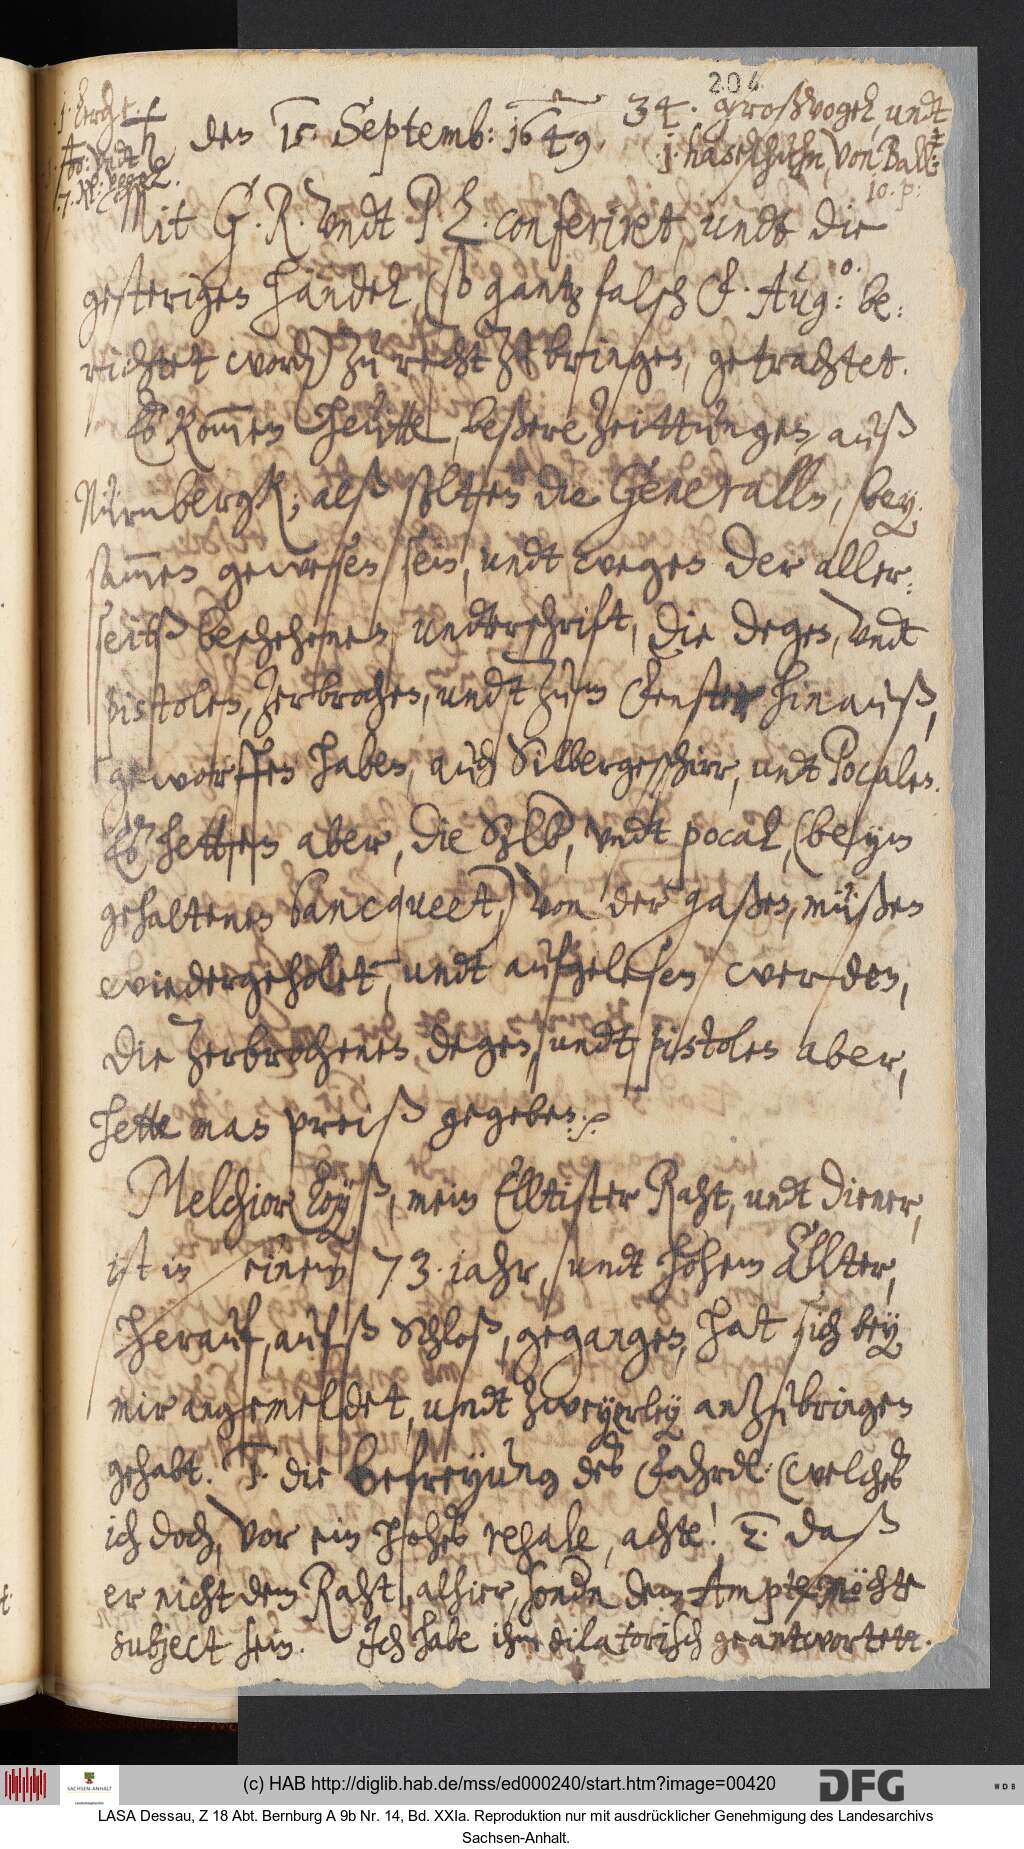 204
den 15. Septemb: 1649.
34. großvogel, undt
1. haselhuhn, von Ball:
10. p:
Mit G. R. Undt P. L. conferiret, undt die
gesterigen händel, (so gantz falsch F. Aug: be:
richtet word) zu recht zu bringen, getrachtet.
Es kommen heütte, beßere zeittungen auß
Nürnbergk; alß sollten die Generalln, bey
sammen gewesen sein, undt wegen der aller:
seits beschehenen underschrift, die degen, undt
pistolen, zerbrochen, undt zum fenster hinauß,
geworffen haben, auch Silbergeschirr, undt Pocalen.
Es hetten aber, die Sylb, undt pocal, (beym
gehaltenen bancqueet,) von der gaßen, müßen
wiedergeholet, undt aufgelesen werden,
die zerbrochenen degen, undt pistolen aber,
hette man preiß gegeben.
Melchior Loyß, mein Elltister Raht, undt diener,
ist in einem 73. jahr, undt hohem Allter,
herauf, aufß Schloß, gegangen, hat sich bey
mir angemeldet, undt zweyerley anzubringen
gehabt. 1. die befreyung des Fahrdl: (welches
ich doch, vor ein hohes regale, achte! 2. daß
er nicht dem Raht, alhier, sondn dem Ampte möchte
subject sein. Ich habe ihm dilatorisch geantwortett.
(c) HAB http://diglib.hab.de/mss/ed000240/start.htm?image=00420
SACHSEN-ANHALT
DFG
WDB
LASA Dessau, Z 18 Abt. Bernburg A 9b Nr. 14, Bd. XXIa. Reproduktion nur mit ausdrücklicher Genehmigung des Landesarchivs
Sachsen-Anhalt.